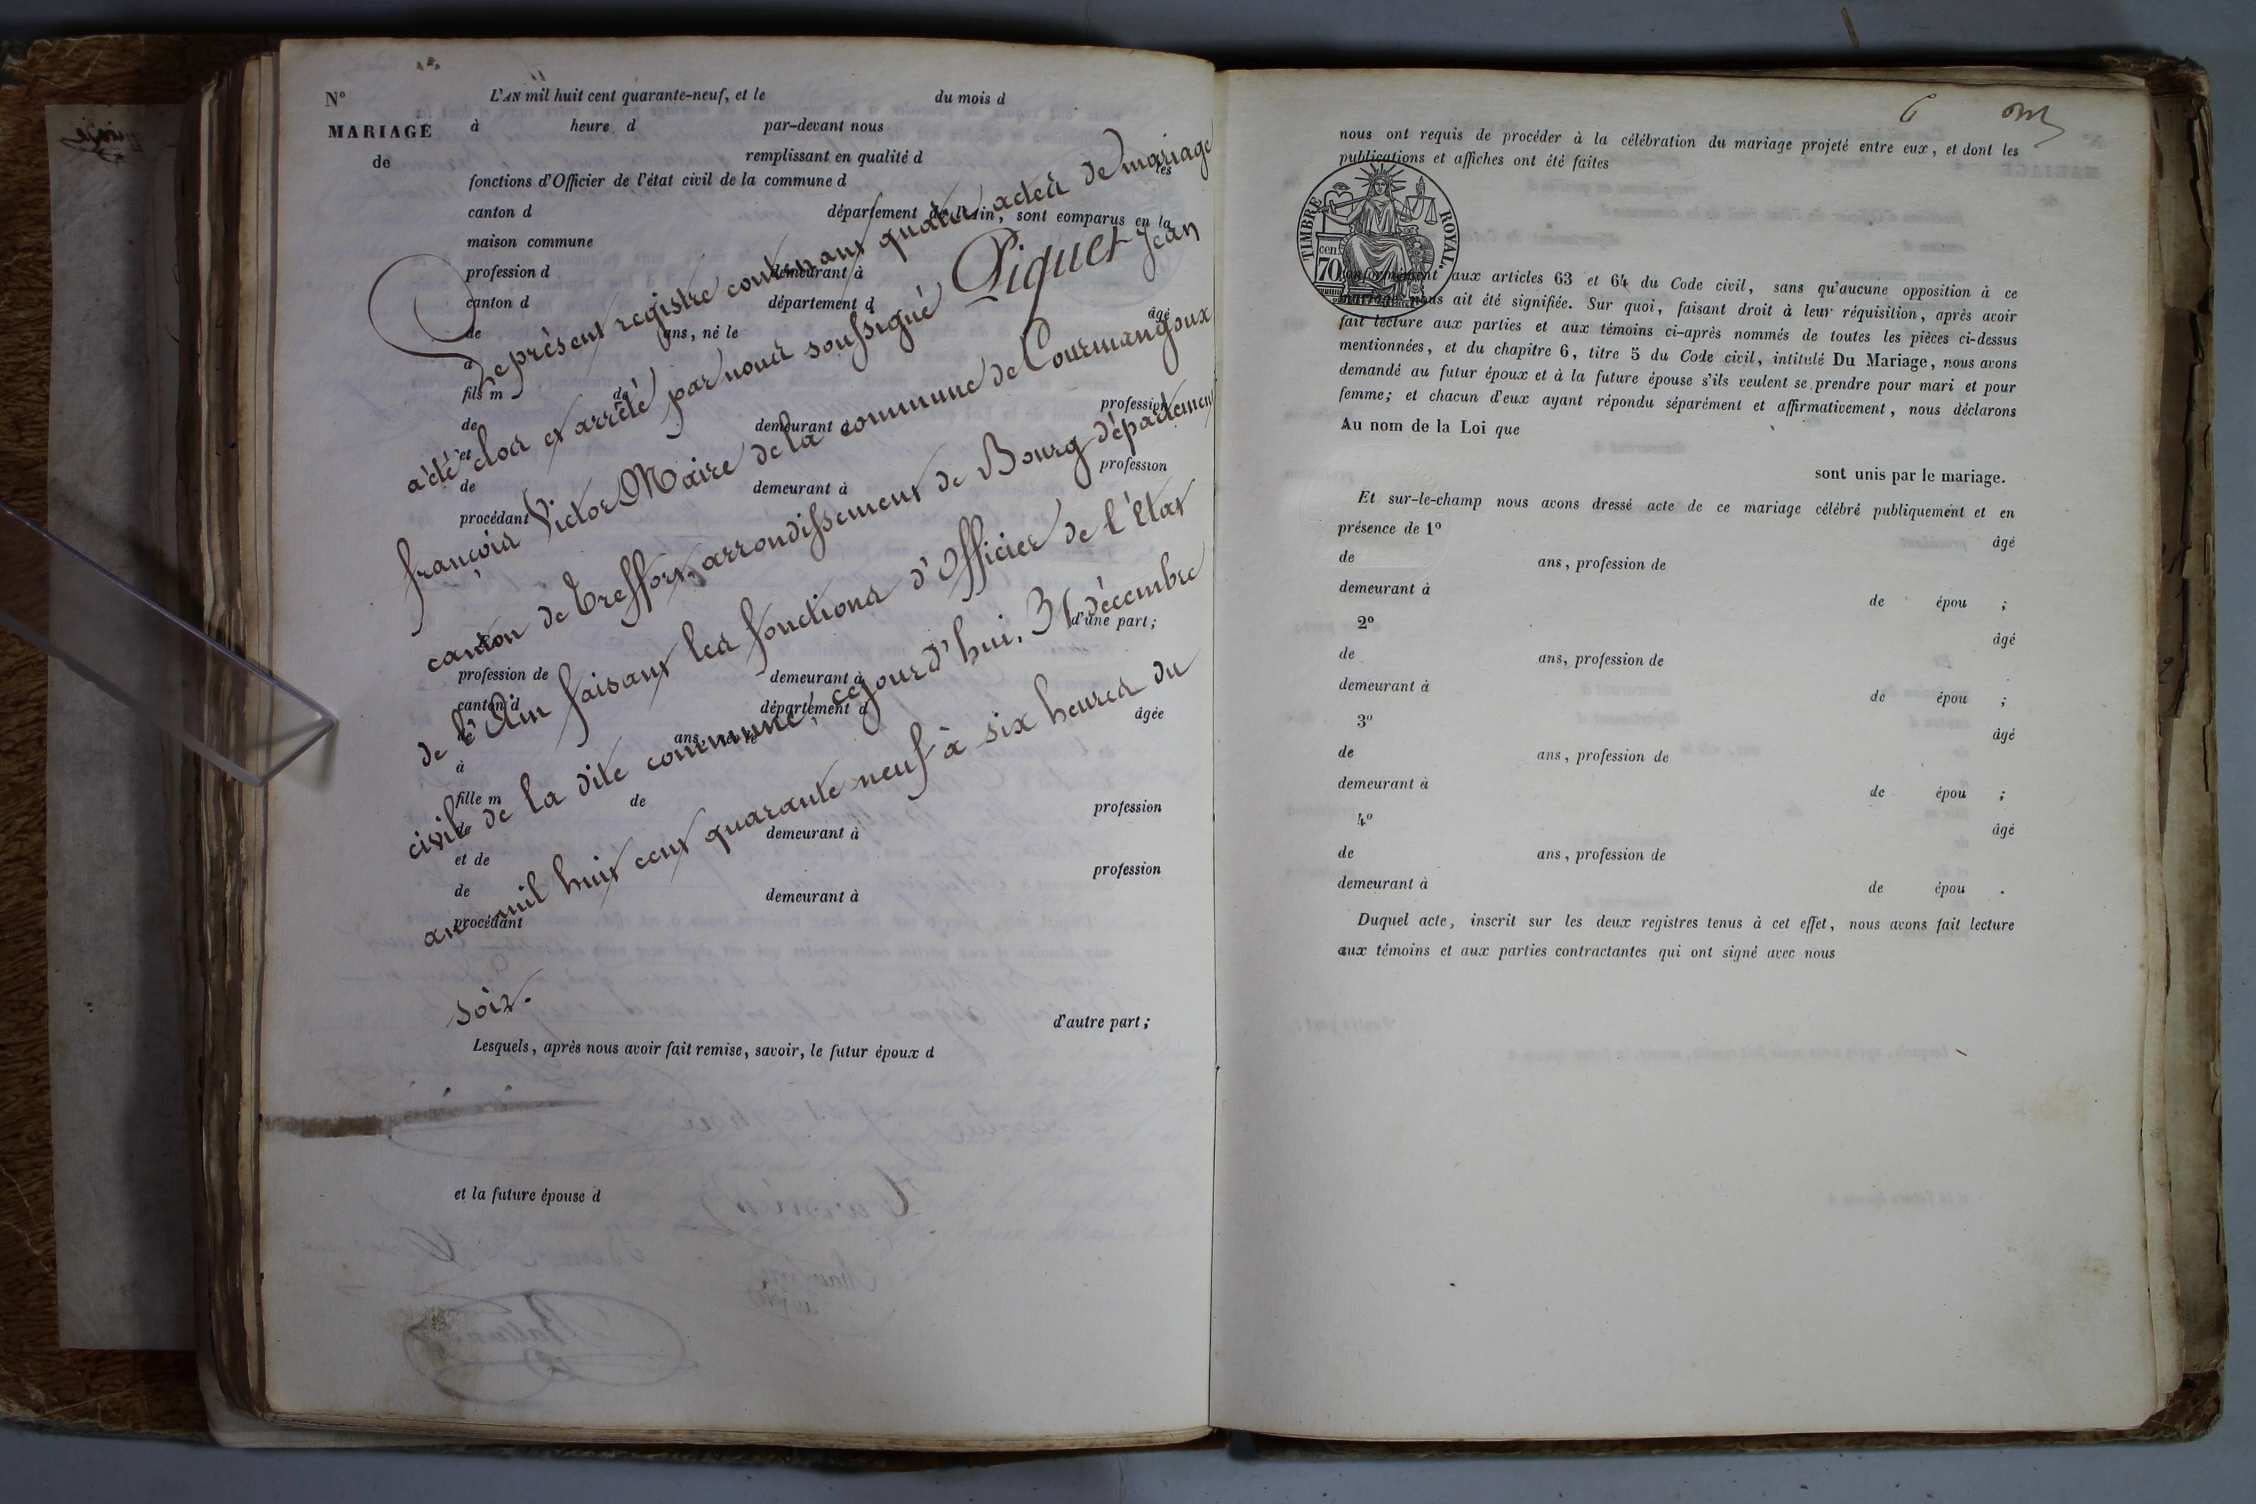 N°
L'AN mil huit cent quarante-neuf, et le du mois d
MARIAGE
de
à heure d par-devant nous
remplissant en qualité d les
fonctions d'Officier de l'état civil de la commune d
canton d département de l'Ain, sont comparus en la
maison commune
profession d demeurant à
canton d département d
de ans, né le âgé
à
fils m de
de demeurant à profession
et
de demeurant à profession
procédant
d'une part;
profession de demeurant à
canton d département d
de ans, née le âgée
à
fille m de
de demeurant à profession
et de
de demeurant à profession
procédant
d'autre part;
Lesquels, après nous avoir fait remise, savoir, le futur époux d
et la future épouse d
Le présent registre contenant quatre actes de mariage
a été clos et arrêté par nous soussigné Piquet Jean
françois Victor Maire de la commune de Courmangoux
canton de Treffort, arrondissement de Bourg département
de l'Ain faisant les fonctions d'Officier de l'Etat
civil de la dite commune, cejourd'hui, 31 décembre
an mil huit cent quarante neuf à six heures du
soir.
6
nous ont requis de procéder à la célébration du mariage projeté entre eux, et dont les
publications et affiches ont été faites
TIMBRE ROYAL.
70 cen
conformément aux articles 63 et 64 du Code civil, sans qu'aucune opposition à ce
mariage nous ait été signifiée. Sur quoi, faisant droit à leur réquisition, après avoir
fait lecture aux parties et aux témoins ci-après nommés de toutes les pièces ci-dessus
mentionnées, et du chapitre 6, titre 5 du Code civil, intitulé Du Mariage, nous avons
demandé au futur époux et à la future épouse s'ils veulent se prendre pour mari et pour
femme; et chacun d'eux ayant répondu séparément et affirmativement, nous déclarons
Au nom de la Loi que
sont unis par le mariage.
Et sur-le-champ nous avons dressé acte de ce mariage célébré publiquement et en
présence de 1° âgé
de ans, profession de
demeurant à de épou ;
2° âgé
de ans, profession de
demeurant à de épou ;
3° âgé
de ans, profession de
demeurant à de épou ;
4° âgé
de ans, profession de
demeurant à de épou .
Duquel acte, inscrit sur les deux registres tenus à cet effet, nous avons fait lecture
aux témoins et aux parties contractantes qui ont signé avec nous